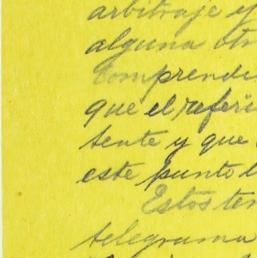 arbitraje y
alguna otr
Comprende
que el referi
tente y que
este punto l
Estos ter
telegrama